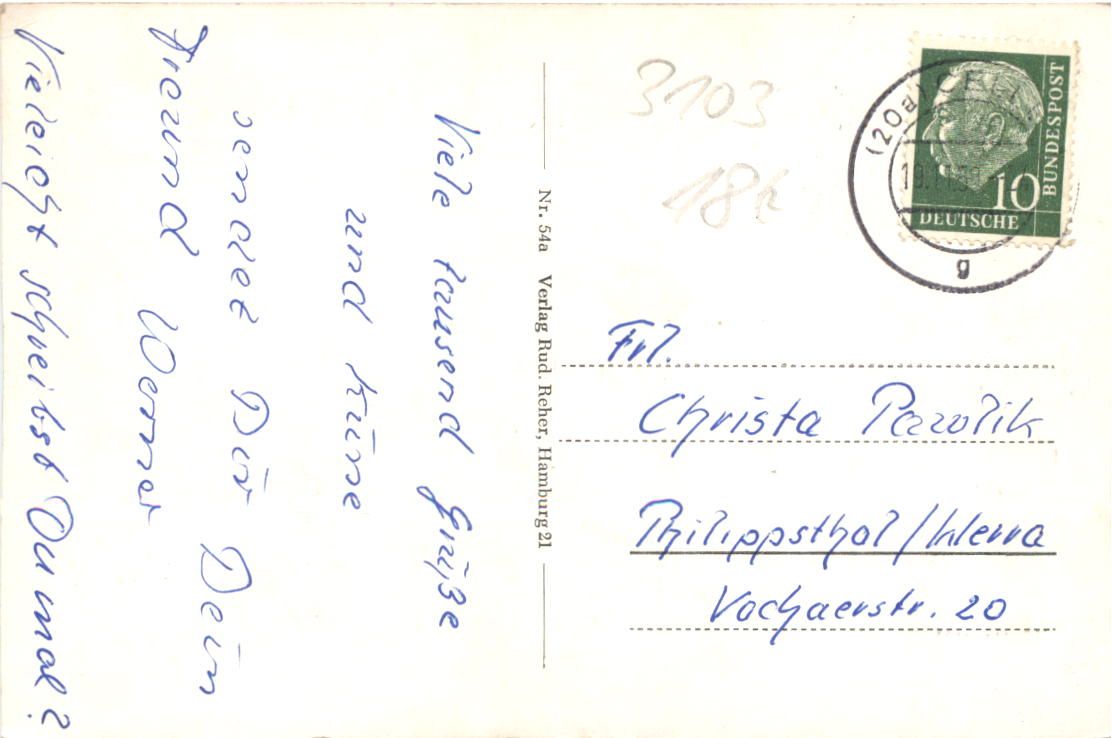 Viele tausend Grüße
und Küsse
sendet Dir Dein
Freund Werner
Vieleicht schreibst Du mal?
Nr. 54a Verlag Rud. Reher, Hamburg 21
3103
18k
(20a) CELLE
g
10
DEUTSCHE
BUNDESPOST
Frl.
Christa Pazolik
Philippsthal/Werra
Vachaerstr. 20